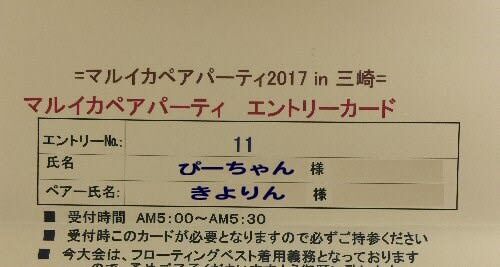 =マルイカペアパーティ2017 in 三崎=
マルイカペアパーティ　エントリーカード
エントリーNo.: 11
氏名 ぴーちゃん 様
ペアー氏名: きよりん 様
■ 受付時間 AM5:00～AM5:30
■ 受付時このカードが必要となりますので必ずご持参ください
■ 今大会は、フローティングベスト着用義務となっております